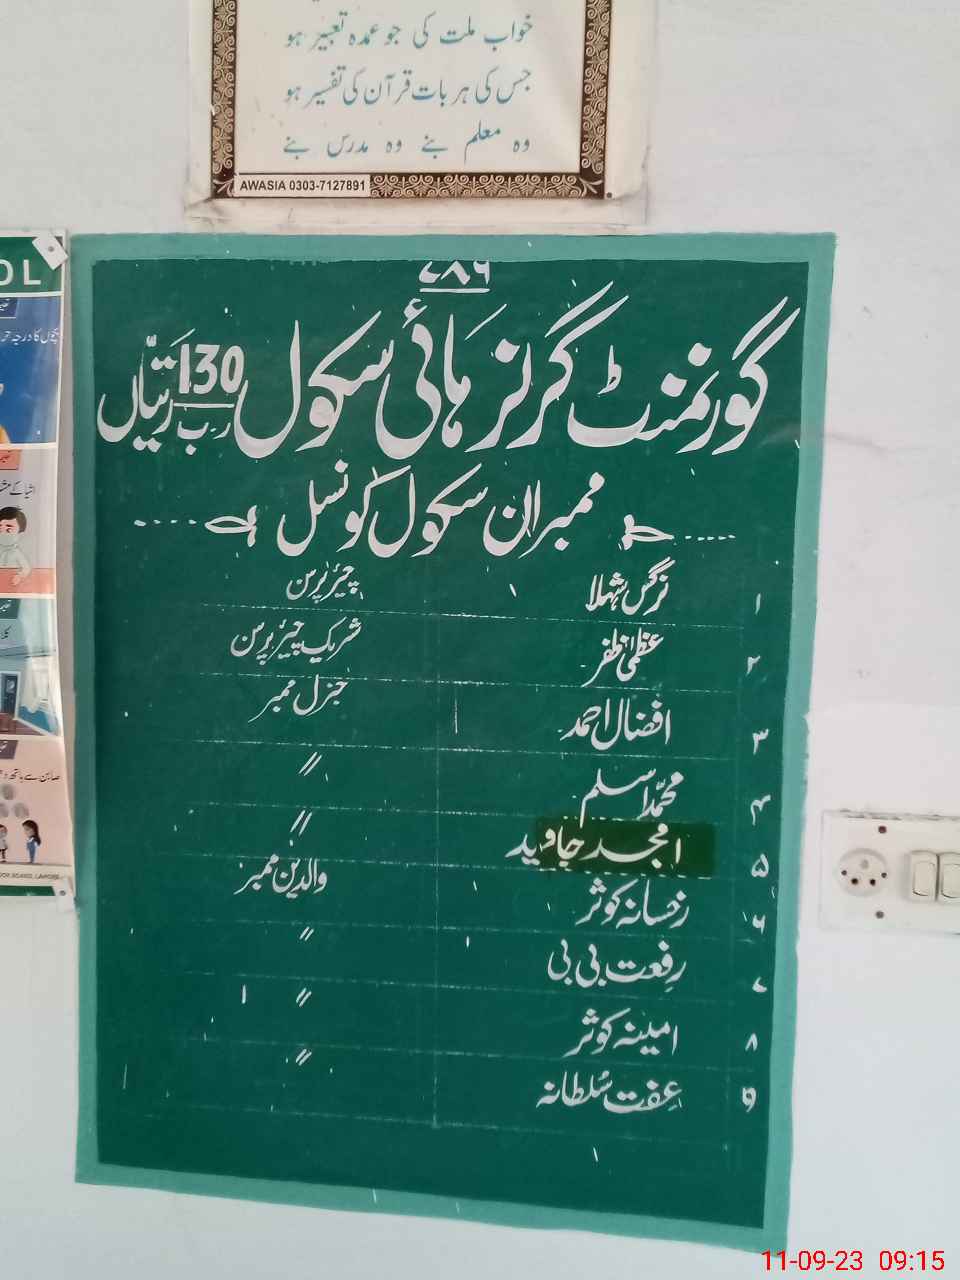 خواب ملت کی جو عمدہ تعبیر ہو
جس کی ہر بات قرآن کی تفسیر ہو
وہ معلم بنے وہ مدرس بنے
AWASIA 0303-7127891
OL
۷۸۶
گورنمنٹ گرلز ہائی سکول 130 ر۔ب رتیاں
ممبران سکول کونسل
۱ نرگس شہلا چیئرپرسن
۲ عظمیٰ ظفر شریک چیئرپرسن
۳ افضال احمد جنرل ممبر
۴ محمّد اسلم 〃
۵ امجد جاوید 〃
۶ رخسانہ کوثر والدین ممبر
۷ رفعت بی بی 〃
۸ امینہ کوثر 〃
۹ عِفت سُلطانہ 〃
11-09-23 09:15